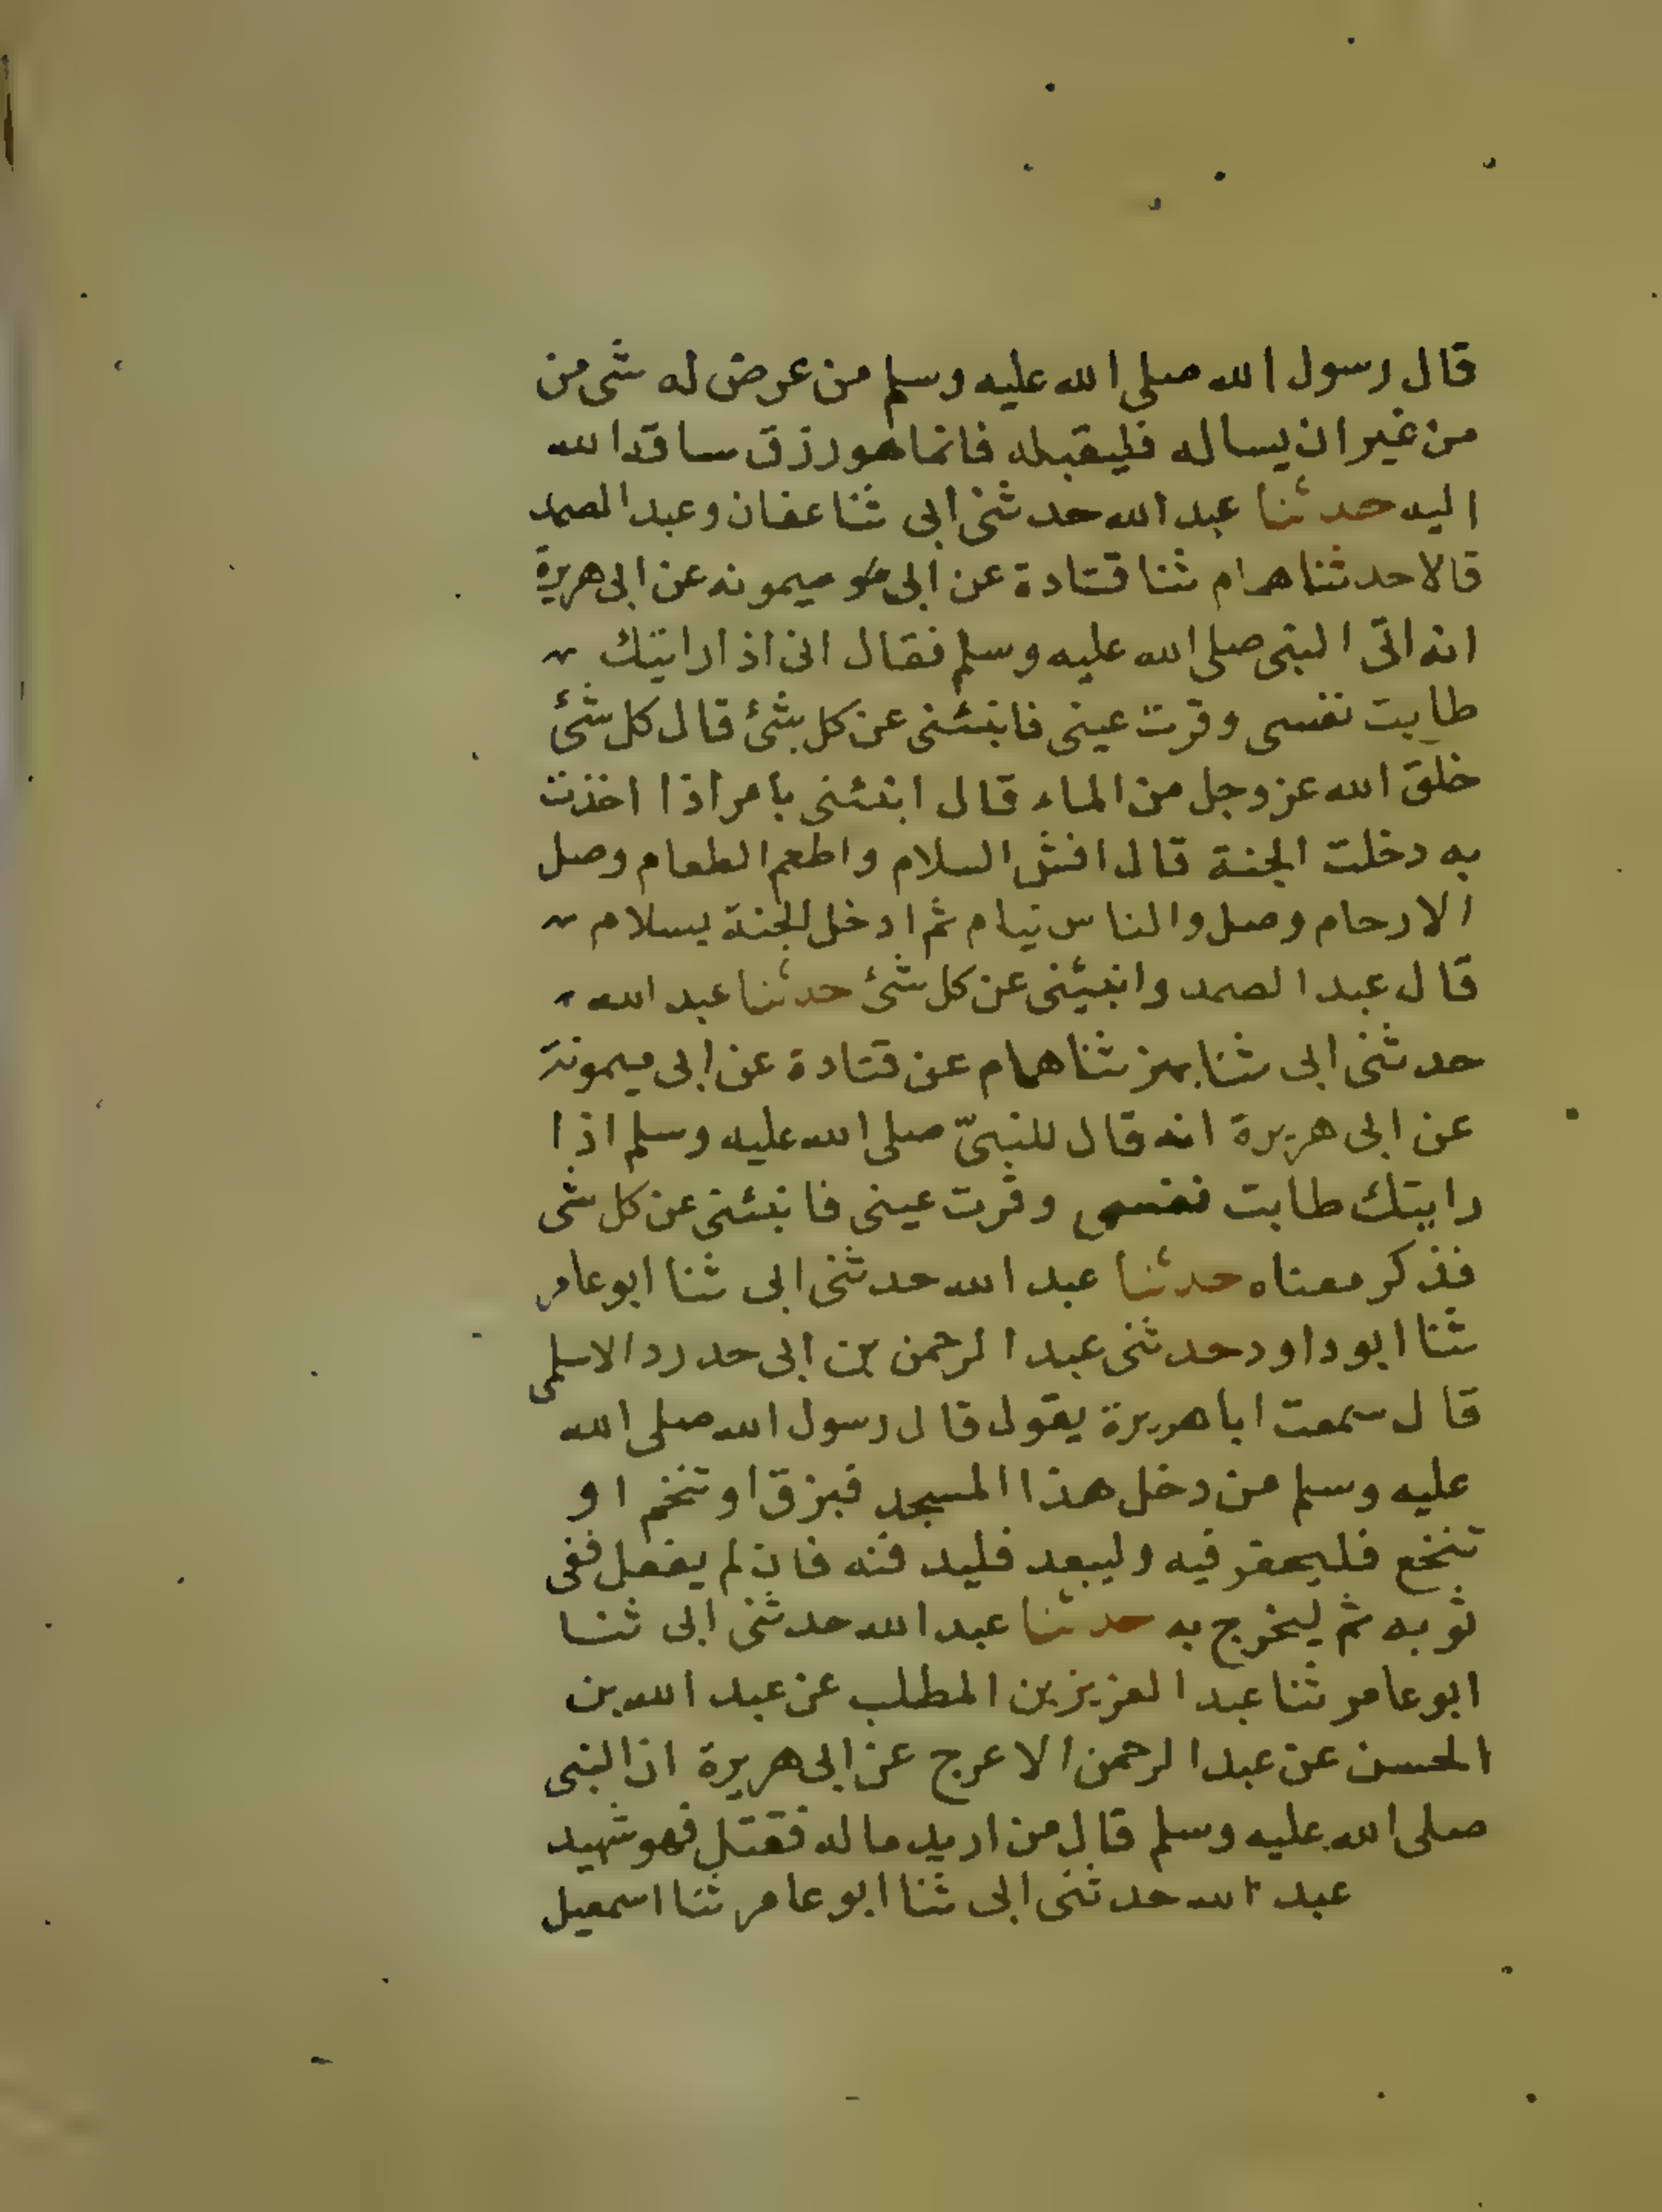 قال رسول الله صلى الله عليه وسلم من عرض له شى من
من غير ان يساله فليقبله فانما هو رزق ساقه الله
اليه حدثنا عبد الله حدثنى ابى ثنا عفان وعبد الصمد
قالا حدثنا همام ثنا قتادة عن ابى ميمونه عن ابى هريرة
انه اتى النبى صلى الله عليه وسلم فقال انى اذا رايتك
طابت نفسى وقرت عينى فانبئنى عن كل شئ قال كل شئ
خلق الله عز وجل من الماء قال انبئنى بامر اذا اخذت
به دخلت الجنة قال افش السلام واطعم الطعام وصل
الارحام وصل والناس نيام ثم ادخل الجنة بسلام
قال عبد الصمد وانبئنى عن كل شئ حدثنا عبد الله
حدثنى ابى ثنا بهز ثنا همام عن قتادة عن ابى ميمونة
عن ابى هريرة انه قال للنبىّ صلى الله عليه وسلم اذا
رايتك طابت نفسى وقرت عينى فانبئنى عن كل شى
فذكر معناه حدثنا عبد الله حدثنى ابى ثنا ابو عامر
ثنا ابو داود حدثنى عبد الرحمن بن ابى حدرد الاسلمى
قال سمعت ابا هريرة يقول قال رسول الله صلى الله
عليه وسلم من دخل هذا المسجد فبزق او تنخم او
تنخع فليحفر فيه وليبعد فليدفنه فان لم يفعل ففى
ثوبه ثم ليخرج به حدثنا عبد الله حدثنى ابى ثنا
ابو عامر ثنا عبد العزيز بن المطلب عن عبد الله بن
الحسن عن عبد الرحمن الاعرج عن ابى هريرة ان النبى
صلى الله عليه وسلم قال من اريد ماله فقتل فهو شهيد
عبد الله حدثنى ابى ثنا ابو عامر ثنا اسمعيل